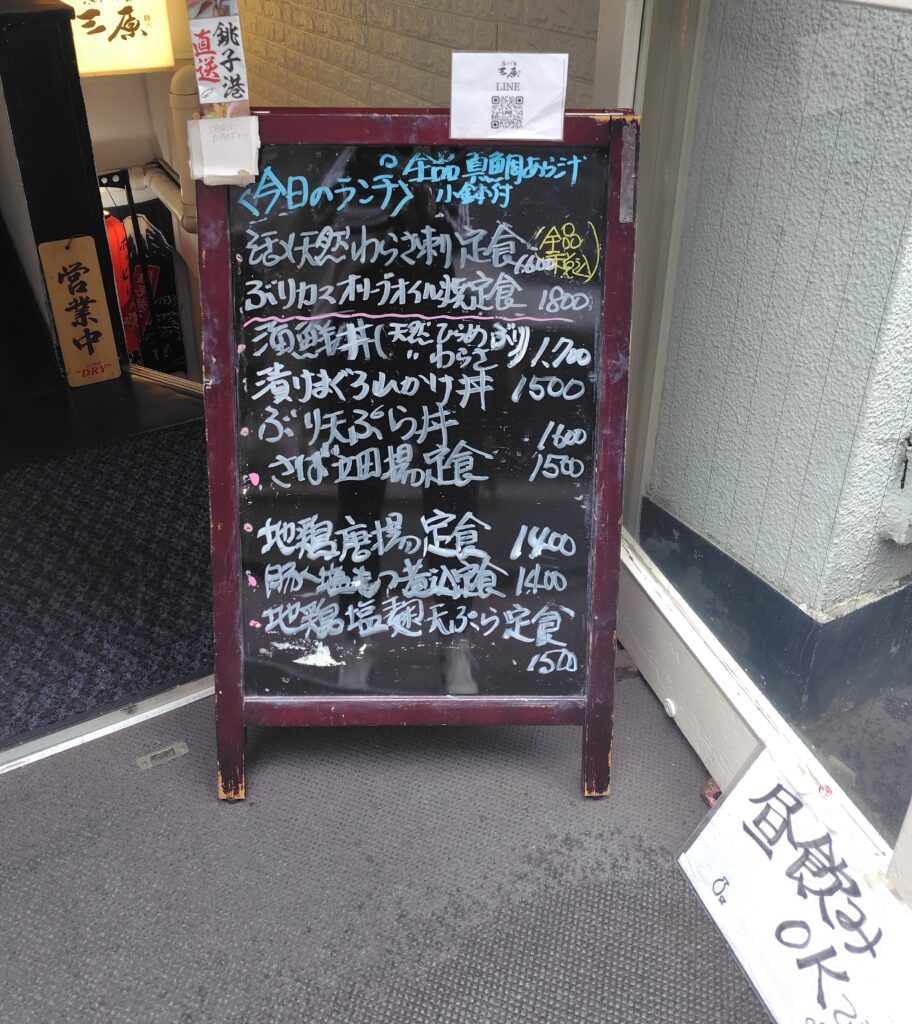 三原
銚子港
直送
三原
LINE
営業中
DRY
<今日のランチ>
全品 真鯛あら汁
小鉢付
活〆天然わらさ刺定食 1.600
全品
税込
ぶりカマオリーブオイル焼定食 1800
海鮮丼(天然ひらめぶり
〃わらさ) 1.700
漬けまぐろ山かけ丼 1500
ぶり天ぷら丼 1600
さば立田揚の定食 1500
地鶏唐揚の定食 1400
豚ハ塩もつ煮込定食 1400
地鶏塩麹天ぷら定食
1500
昼飲み
OK